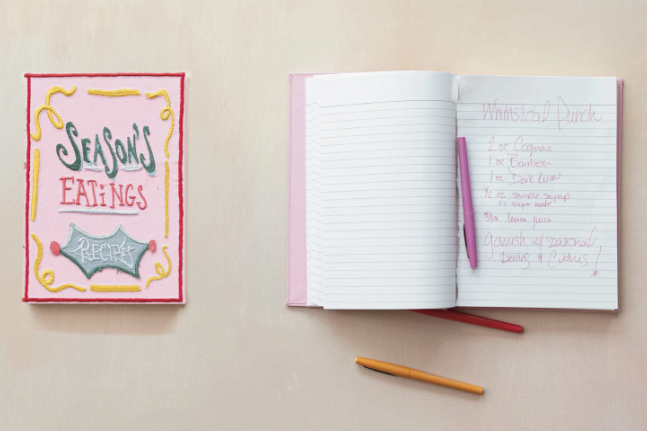 SEASON'S
EATINGS
RECIPES
Whimsical Punch
2 oz Cognac
1 oz Bourbon
1 oz Dark Rum
1/2 oz simple syrup
1:1 sugar water
lemon juice
garnish w/ seasonal
Berries & Citrus!